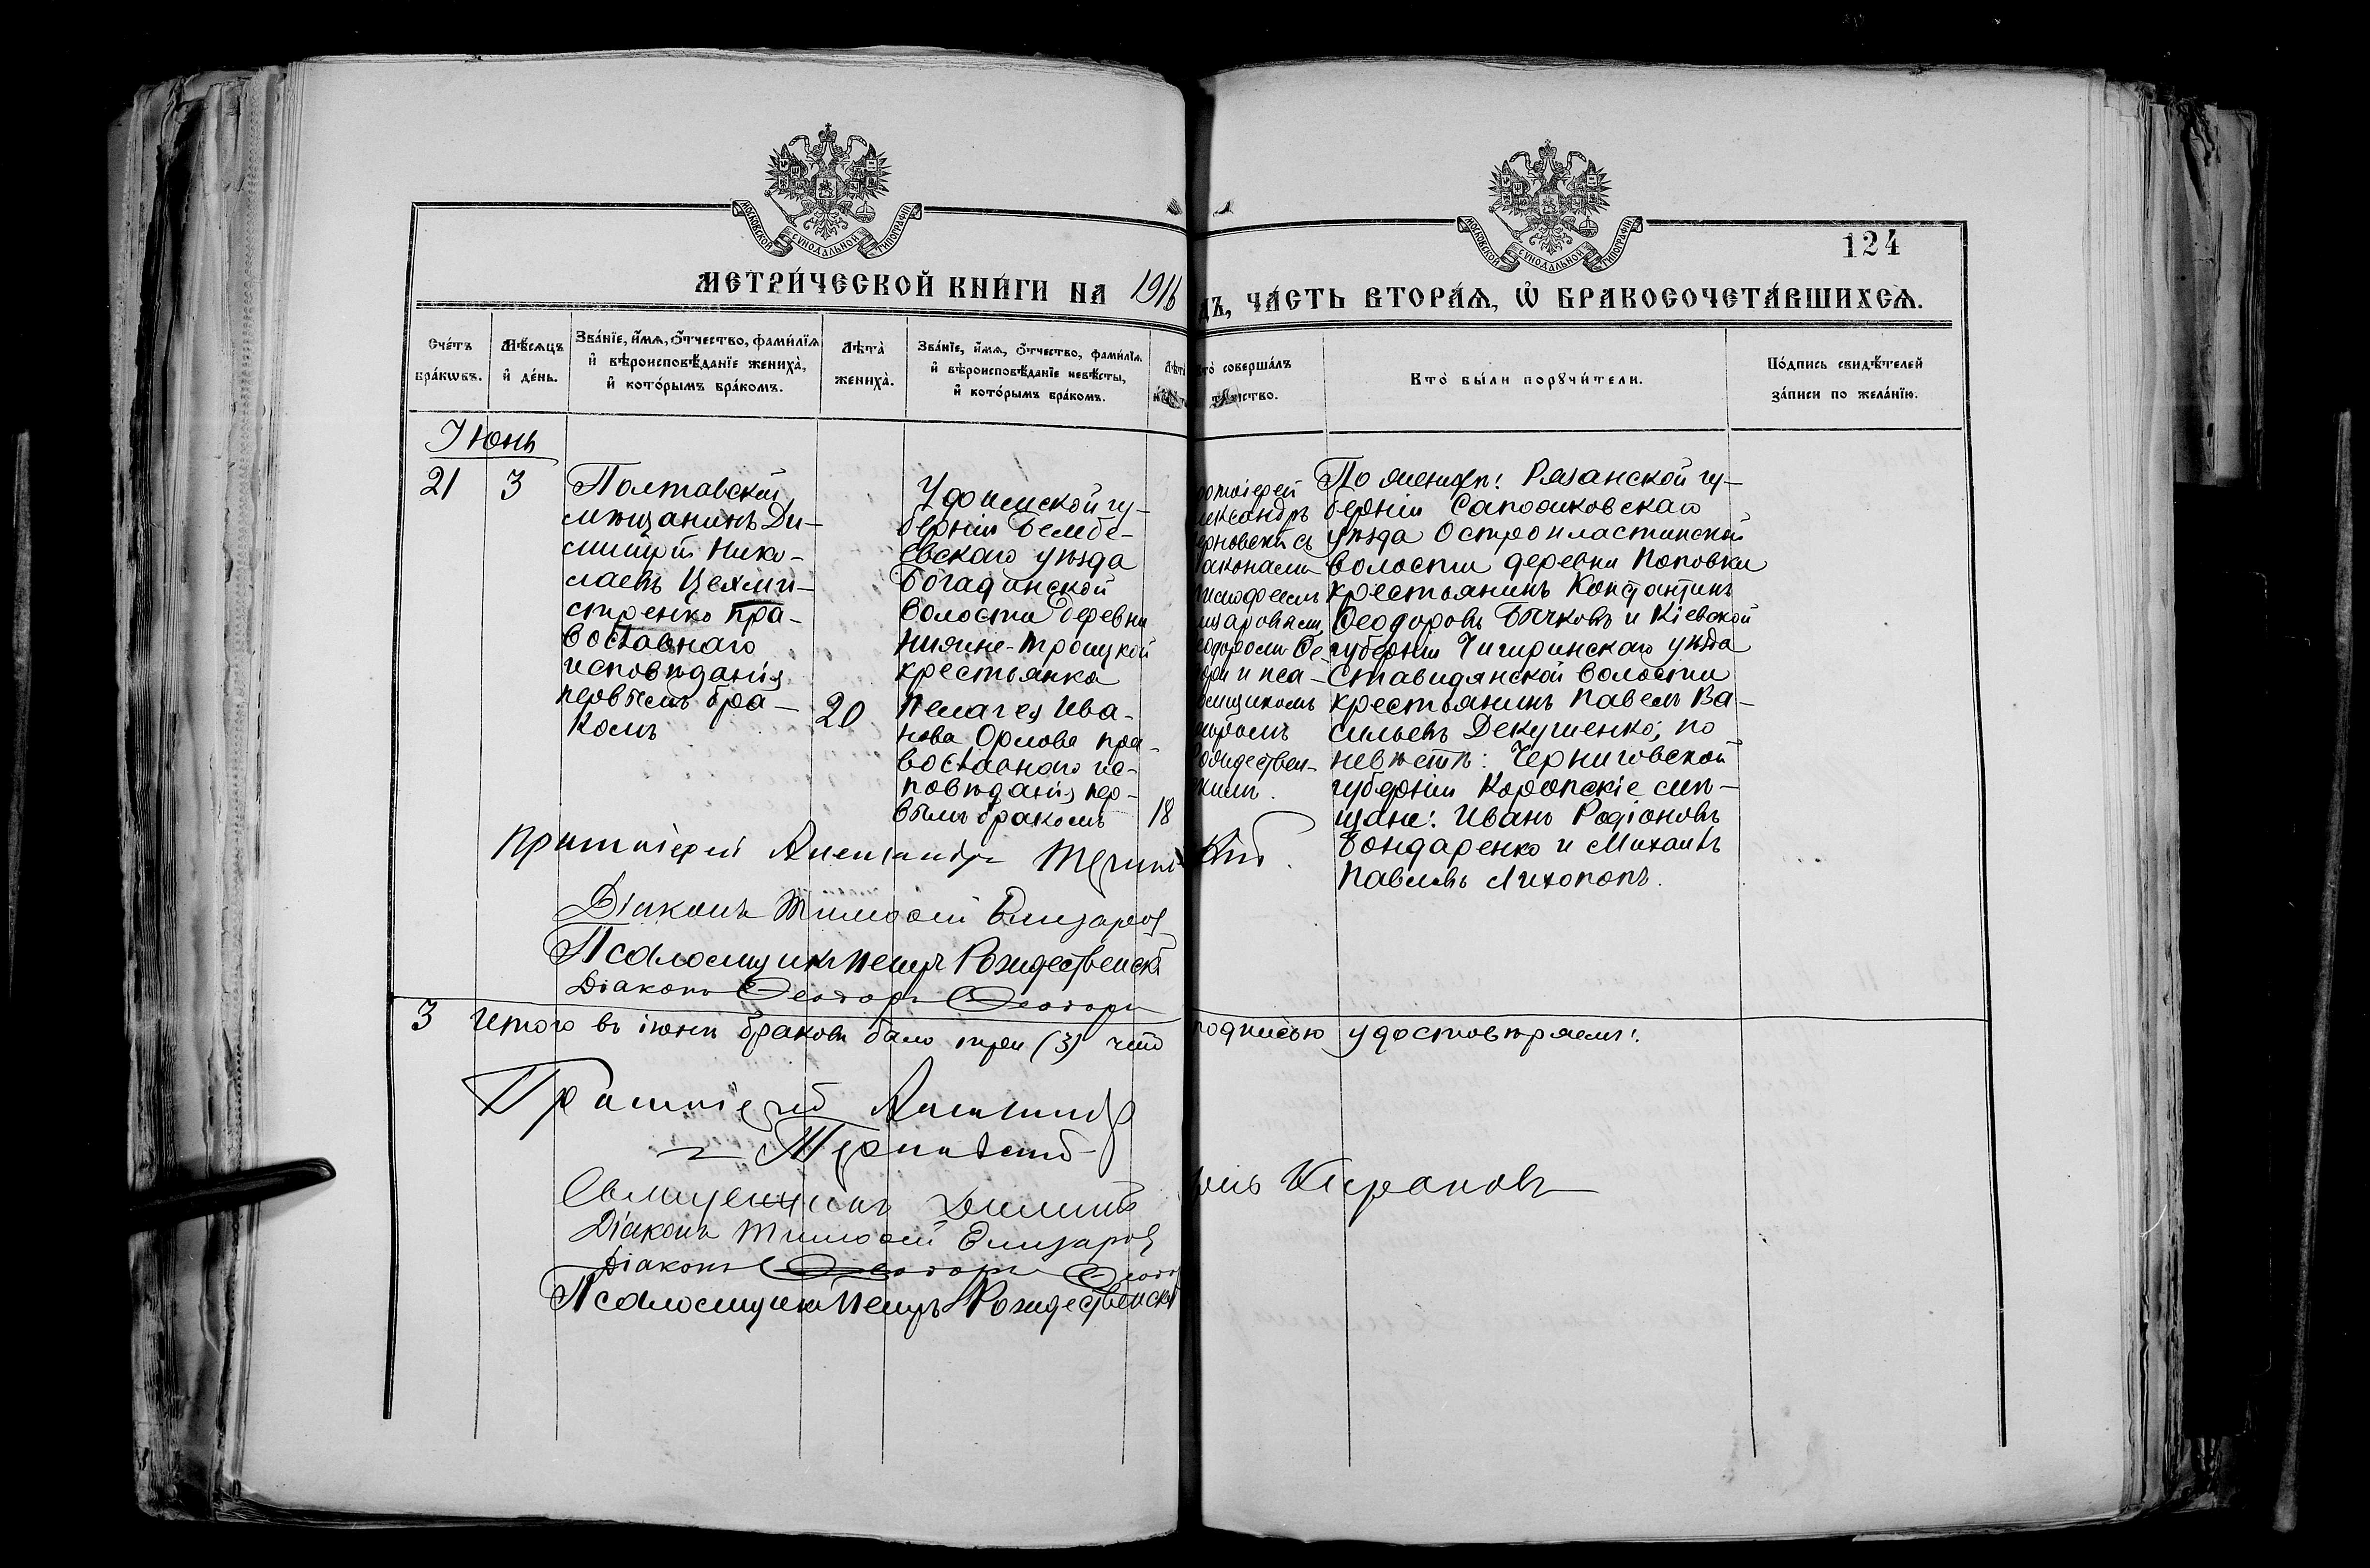 МОСКОВСКОЙ СѴНОДАЛЬНОЙ ТИПОГРАФІИ
МОСКОВСКОЙ СѴНОДАЛЬНОЙ ТИПОГРАФІИ
124
МЕТРИ́ЧЕСКОЙ КНИ́ГИ НА 1916
ДЪ, ЧА́СТЬ ВТОРА́Ѧ, Ѽ БРАКОСОЧЕТА́ВШИХСѦ.
Сче́тъ бра́кѡвъ.
Мѣ́сѧцъ и҆ де́нь.
Зва́нїе, и҆́мѧ, ѻ҆́тчество, фами́лїѧ
и҆ вѣроисповѣ́данїе жениха̀,
и҆ кото́рымъ бра́комъ.
Лѣта̀ жениха̀.
Зва́нїе, и҆́мѧ, ѻ҆́тчество, фами́лїѧ
и҆ вѣроисповѣ́данїе невѣ́сты,
и҆ кото́рымъ бра́комъ.
Лѣта̀
то̀ соверша́лъ
та́инство.
Кто̀ бы́ли порꙋчи́тели.
По́дпись свидѣ́телей
за́писи по жела́нїю.
Іюнь
21
3
Полтавскій
мѣщанинъ Ди-
митрій Нико-
лаевъ Цехми-
стренко пра-
вославнаго
исповѣданія
первымъ бра-
комъ
20
Уфимской гу-
берніи Белебе-
евскаго уѣзда
Богадинской
волости деревни
Нижне-Троицкой
крестьянка
Пелагея Ива-
нова Орлова пра-
вославнаго ис-
повѣданія пер-
вымъ бракомъ
18
ротоіерей
лександръ
ерновскій съ
іаконами
Тимофеемъ
лизаровымъ,
еодоромъ Ѳе-
и пса-
омщикомъ
етромъ
ождествен-
скимъ.
По женихѣ: Рязанской гу-
берніи Сапожковскаго
уѣзда Остропластинской
волости деревни Поповки
крестьянинъ Константинъ
Ѳеодоровъ Бычковъ и Кіевской
губерніи Чигиринскаго уѣзда
Ставидлянской волости
крестьянинъ Павелъ Ва-
сильевъ Декушенко; по
невѣстѣ: Черниговской
губерніи Коропскіе мѣ-
щане: Иванъ Родіоновъ
Бондаренко и Михаилъ
Павловъ Лихопопъ.
Протоіерей Александръ Терновскій.
Діаконъ Тимоѳей Елизаровъ
Псаломщикъ Петръ Рождественскій
Діаконъ Ѳеодоръ Ѳеодори
3 Итого въ іюнѣ браковъ было три (3) что подписью удостовѣряемъ:
Протоіерей Александръ
Терновскій
Священникъ
Діаконъ Тимоѳей Елизаровъ
Діаконъ Ѳеодоръ
Псаломщикъ Петръ Рождественскій